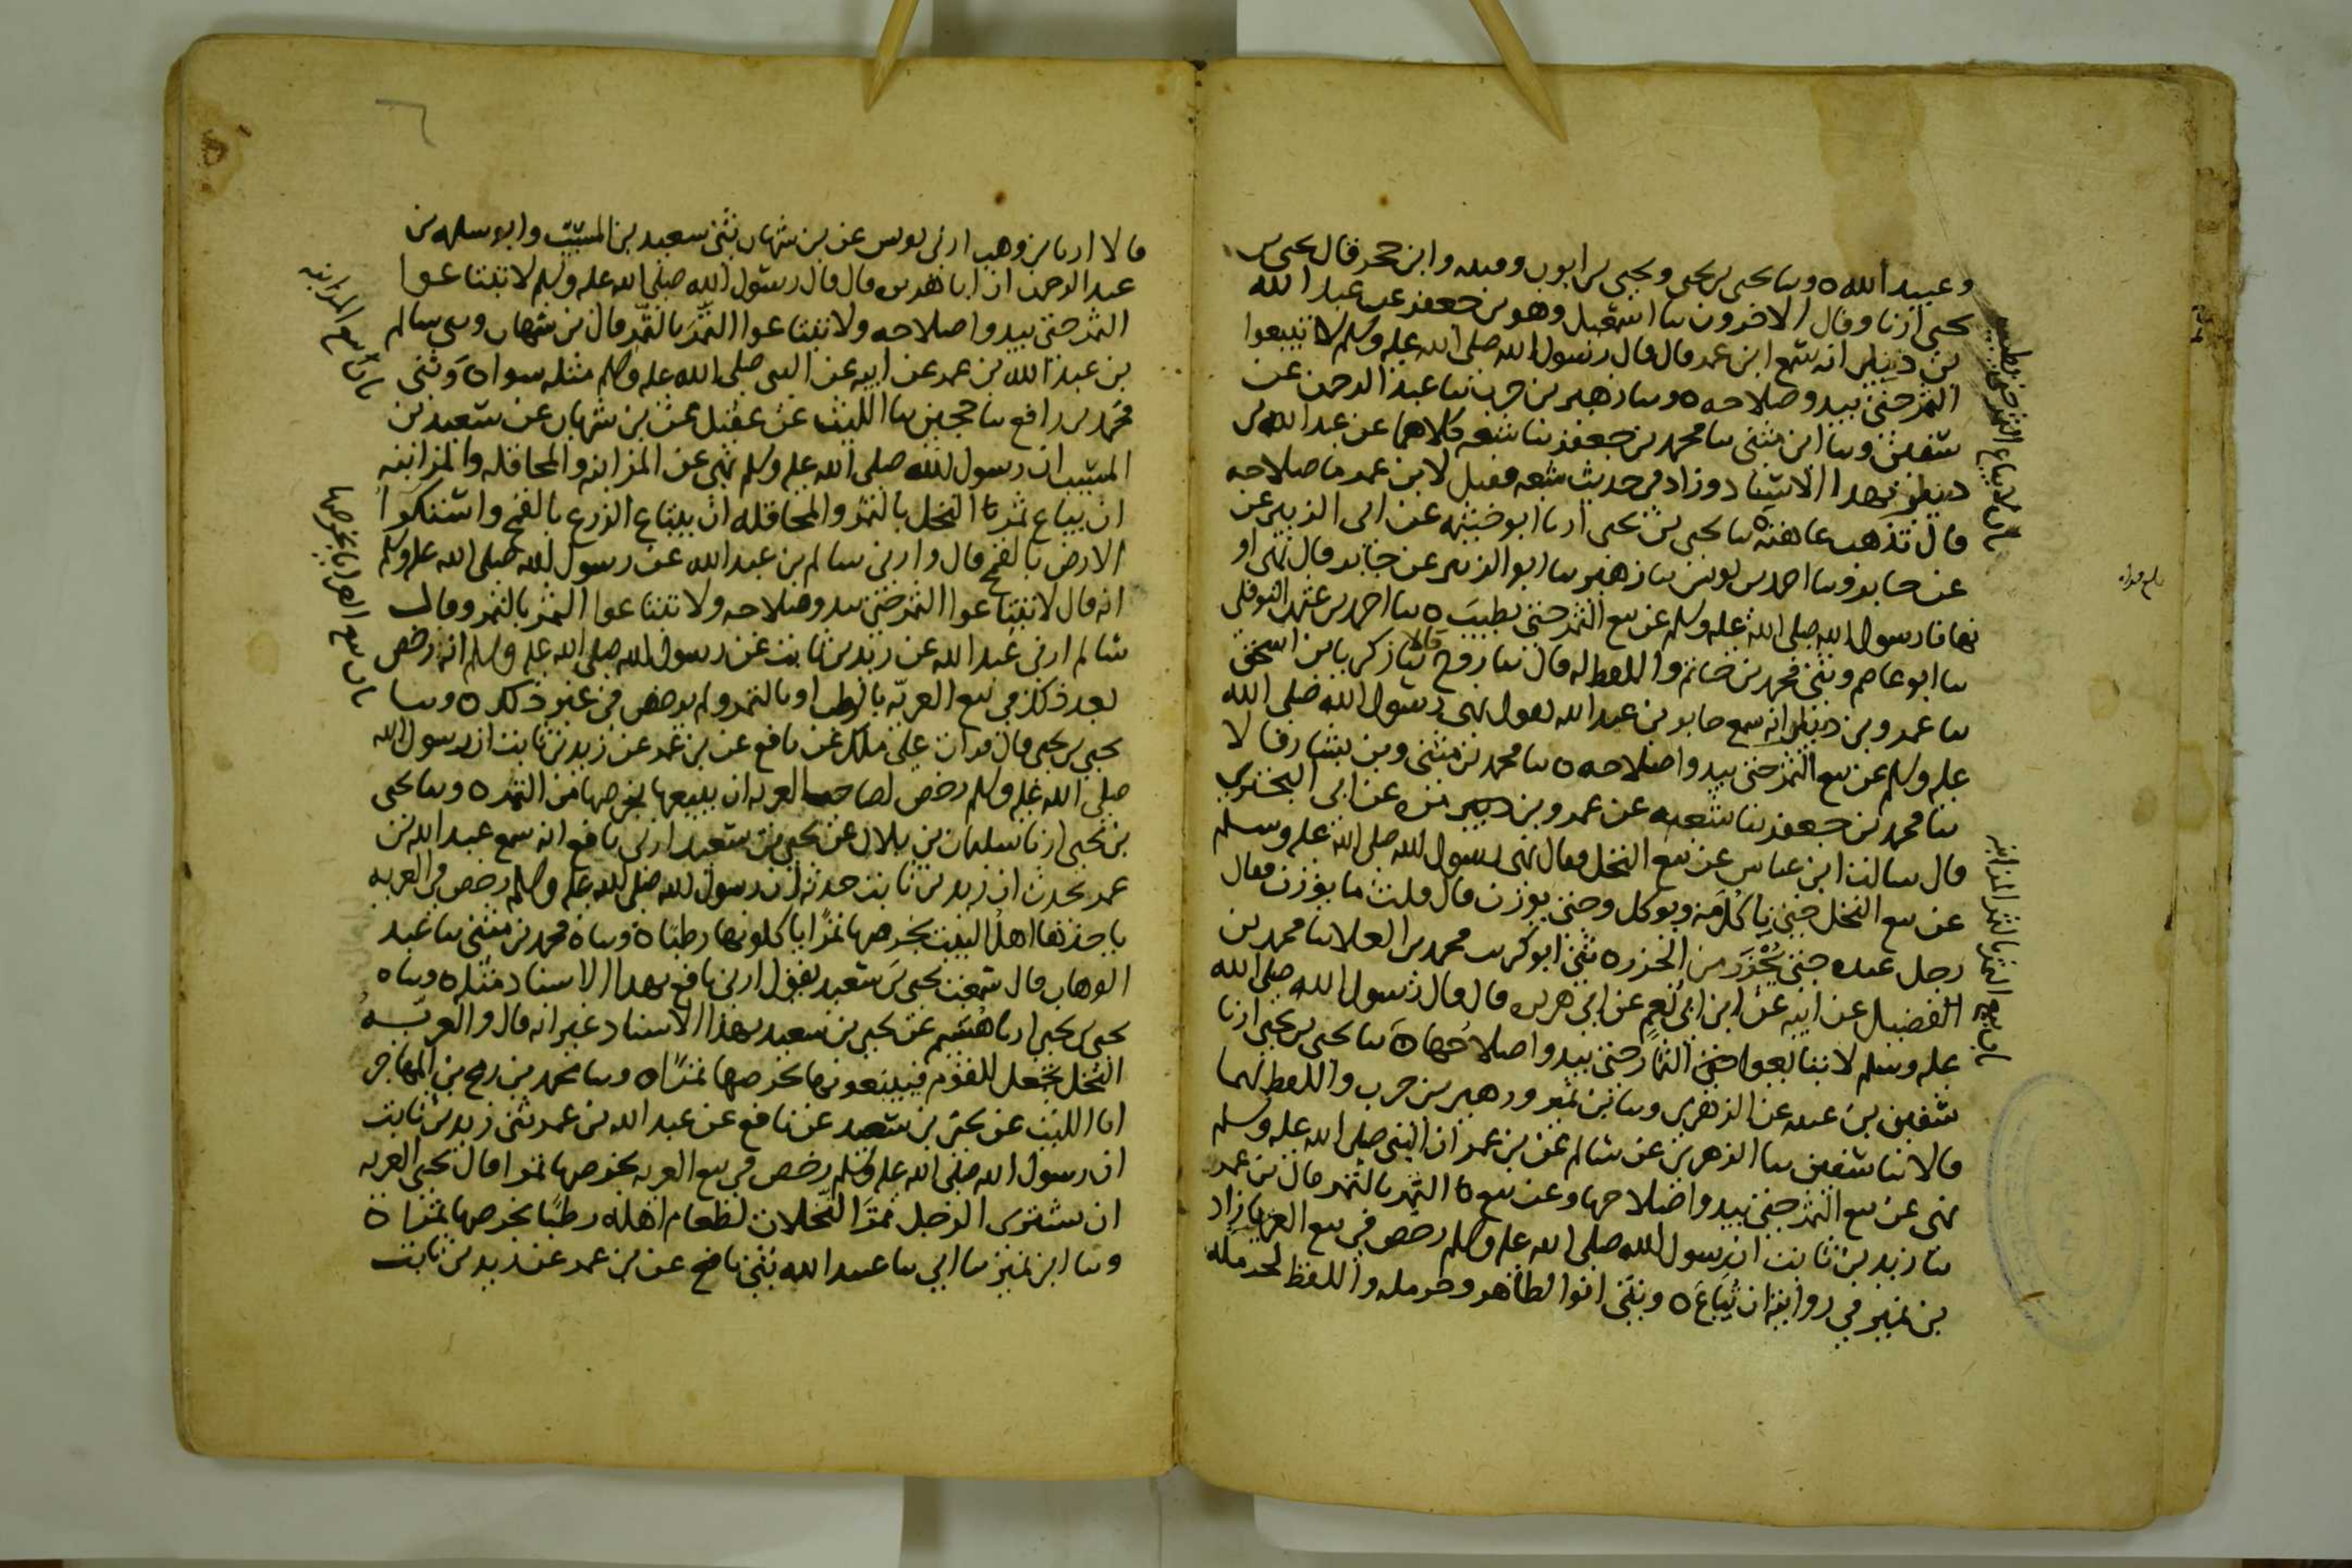 وعبيد الله ٥ وسا يحيى بن يحيى ويحيى بن ايوب وقتيبه وابن حجر قال يحيى بن
يحيى ارنا وقال الاخرون سا اسمعيل وهو بن جعفر عن عبد الله
بن دينار انه سمع ابن عمر قال قال رسول الله صلى الله عليه وسلم لا تبيعوا
الثمر حتى يبدو صلاحه ٥ وسا زهير بن حرب سا عبد الرحمن عن
سفين وسا ابن مثنى سا محمد بن جعفر سا شعبه كلاهما عن عبد الله بن
دينار بهذا الاسناد وزاد في حديث شعبه فقيل لابن عمر ما صلاحه
قال تذهب عاهته ٥ سا يحيى بن يحيى ارنا ابو خيثمه عن ابى الزبير عن
عن جابر وسا احمد بن يونس سا زهير سا ابو الزبير عن جابر قال نهى او
نهانا رسول الله صلى الله عليه وسلم عن بيع الثمر حتى يطيب ٥ سا احمد بن عثمن النوفلي
سا ابو عاصم وثنى محمد بن حاتم واللفظ له قال سا روح قالا سا زكريا بن اسحق
سا عمرو بن دينار انه سمع جابر بن عبد الله يقول نهى رسول الله صلى الله
عليه وسلم عن بيع الثمر حتى يبدو اصلاحه ٥ سا محمد بن مثنى وبن بشار قالا
سا محمد بن جعفر سا شعبه عن عمرو بن مره عن ابى البختري
قال سالت ابن عباس عن بيع النخل فقال نهى رسول الله صلى الله عليه وسلم
عن بيع النخل حتى ياكل منه ويوكل وحتى يوزن قال قلت ما يوزن فقال
رجل عنده حتى يحزر من الحزر ٥ ثنى ابو كريب محمد بن العلا سا محمد بن
الفضيل عن ابيه عن ابن ابي نعم عن ابي هريره قال قال رسول الله صلى الله
عليه وسلم لا تبتاعوا الثمار حتى يبدوا صلاحها ٥ سا يحيى بن يحيى ارنا
سفين بن عيينه عن الزهري وسا بن نمير وزهير بن حرب واللفظ لهما
قالا سا سفين سا الزهري عن سالم عن بن عمر ان النبي صلى الله عليه وسلم
نهى عن بيع الثمر حتى يبدوا صلاحها وعن بيع الثمر بالتمر قال بن عمر
سا زيد بن ثابت ان رسول الله صلى الله عليه وسلم رخص في بيع العرايا زاد
بن نمير في روايته ان تباع ٥ وثنى ابوا لطاهر وحرمله واللفظ لحرمله
قالا ارنا بن وهب ارنى يونس عن بن شهاب ثنى سعيد بن المسيب وابو سلمه بن
عبد الرحمن ان ابا هريره قال قال رسول الله صلى الله عليه وسلم لا تبتاعوا
الثمر حتى يبدوا صلاحه ولا تبتاعوا الثمر بالتمر قال بن شهاب وثنى سالم
بن عبد الله بن عمر عن ابيه عن النبى صلى الله عليه وسلم مثله سوا ٥ وثنى
محمد بن رافع سا حجين سا الليث عن عقيل عن بن شهاب عن سعيد بن
المسيب ان رسول الله صلى الله عليه وسلم نهى عن المزابنه والمحاقله والمزابنه
ان يباع ثمر النخل بالتمر والمحاقله ان يبتاع الزرع بالقمح واستكرا
الارض بالقمح قال وارنى سالم بن عبد الله عن رسول الله صلى الله عليه وسلم
انه قال لا تبتاعوا الثمر حتى يبدو صلاحه ولا تبتاعوا الثمر بالتمر وقال
سالم ارنى عبد الله عن زيد بن ثابت عن رسول الله صلى الله عليه وسلم انه رخص
بعد ذلك في بيع العريه بالرطب او بالتمر ولم يرخص في غير ذلك ٥ وسا
يحيى بن يحيى قال قرات على ملك عن نافع عن بن عمر عن زيد بن ثابت ان رسول الله
صلى الله عليه وسلم رخص لصاحب العريه ان يبيعها بخرصها من التمر ٥ وسا يحيى
بن يحيى ارنا سليمان بن بلال عن يحيى بن سعيد ارنى نافع انه سمع عبد الله بن
عمر يحدث ان زيد بن ثابت حدثه ان رسول الله صلى الله عليه وسلم رخص في العريه
ياخذها اهل البيت بخرصها تمرا ياكلونها رطبا ٥ وسا ٥ محمد بن مثنى سا عبد
الوهاب قال سمعت يحيى بن سعيد يقول ارنى نافع بهذا الاسناد مثله ٥ وسا ٥
يحيى بن يحيى ارنا هشيم عن يحيى بن سعيد بهذا الاسناد غير انه قال والعريه
النخل تجعل للقوم فيبيعونها بخرصها تمرا ٥ وسا محمد بن رمح بن المهاجر
انا الليث عن يحيى بن سعيد عن نافع عن عبد الله بن عمر ثنى زيد بن ثابت
ان رسول الله صلى الله عليه وسلم رخص في بيع العريه بخرصها تمرا قال يحيى العريه
ان يشترى الرجل ثمر النخلات لطعام اهله رطبا بخرصها تمرا ٥
وسا ابن نمير سا ابي سا عبيد الله ثنى نافع عن بن عمر عن زيد بن ثابت
باب بيع المزابنه
باب بيع العرايا بخرصها